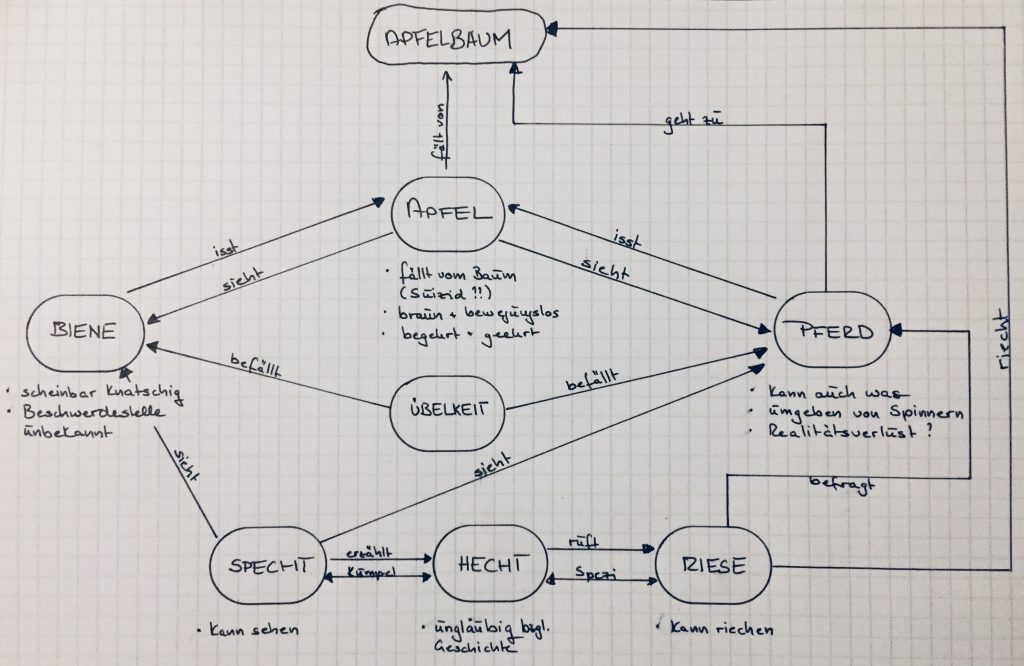 APFELBAUM
geht zu
fällt von
APFEL
isst
sieht
isst
sieht
riecht
• fällt vom Baum
(Suizid !!)
• braun + bewegungslos
• begehrt + geehrt
BIENE
PFERD
befällt
ÜBELKEIT
befällt
• scheinbar Knatschig
• Beschwerdestelle
unbekannt
• Kann auch was
• umgeben von Spinnern
• Realitätsverlust ?
sieht
sieht
befragt
SPECHT
erzählt
Kumpel
HECHT
ruft
Spezi
RIESE
• Kann sehen
• ungläubig bzgl.
Geschichte
• Kann riechen